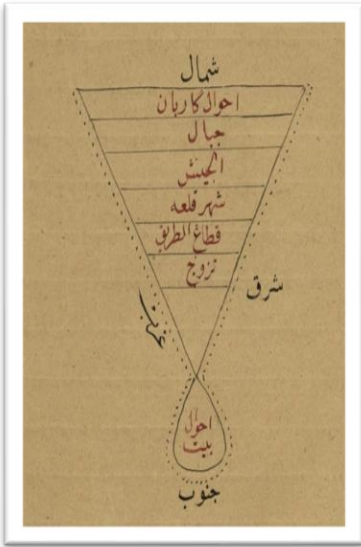 شمال
احوال کاربان
جبال
الجیش
شهر قلعه
قطاع الطریق
تزوج
شرق
غرب
احوال
بیت
جنوب